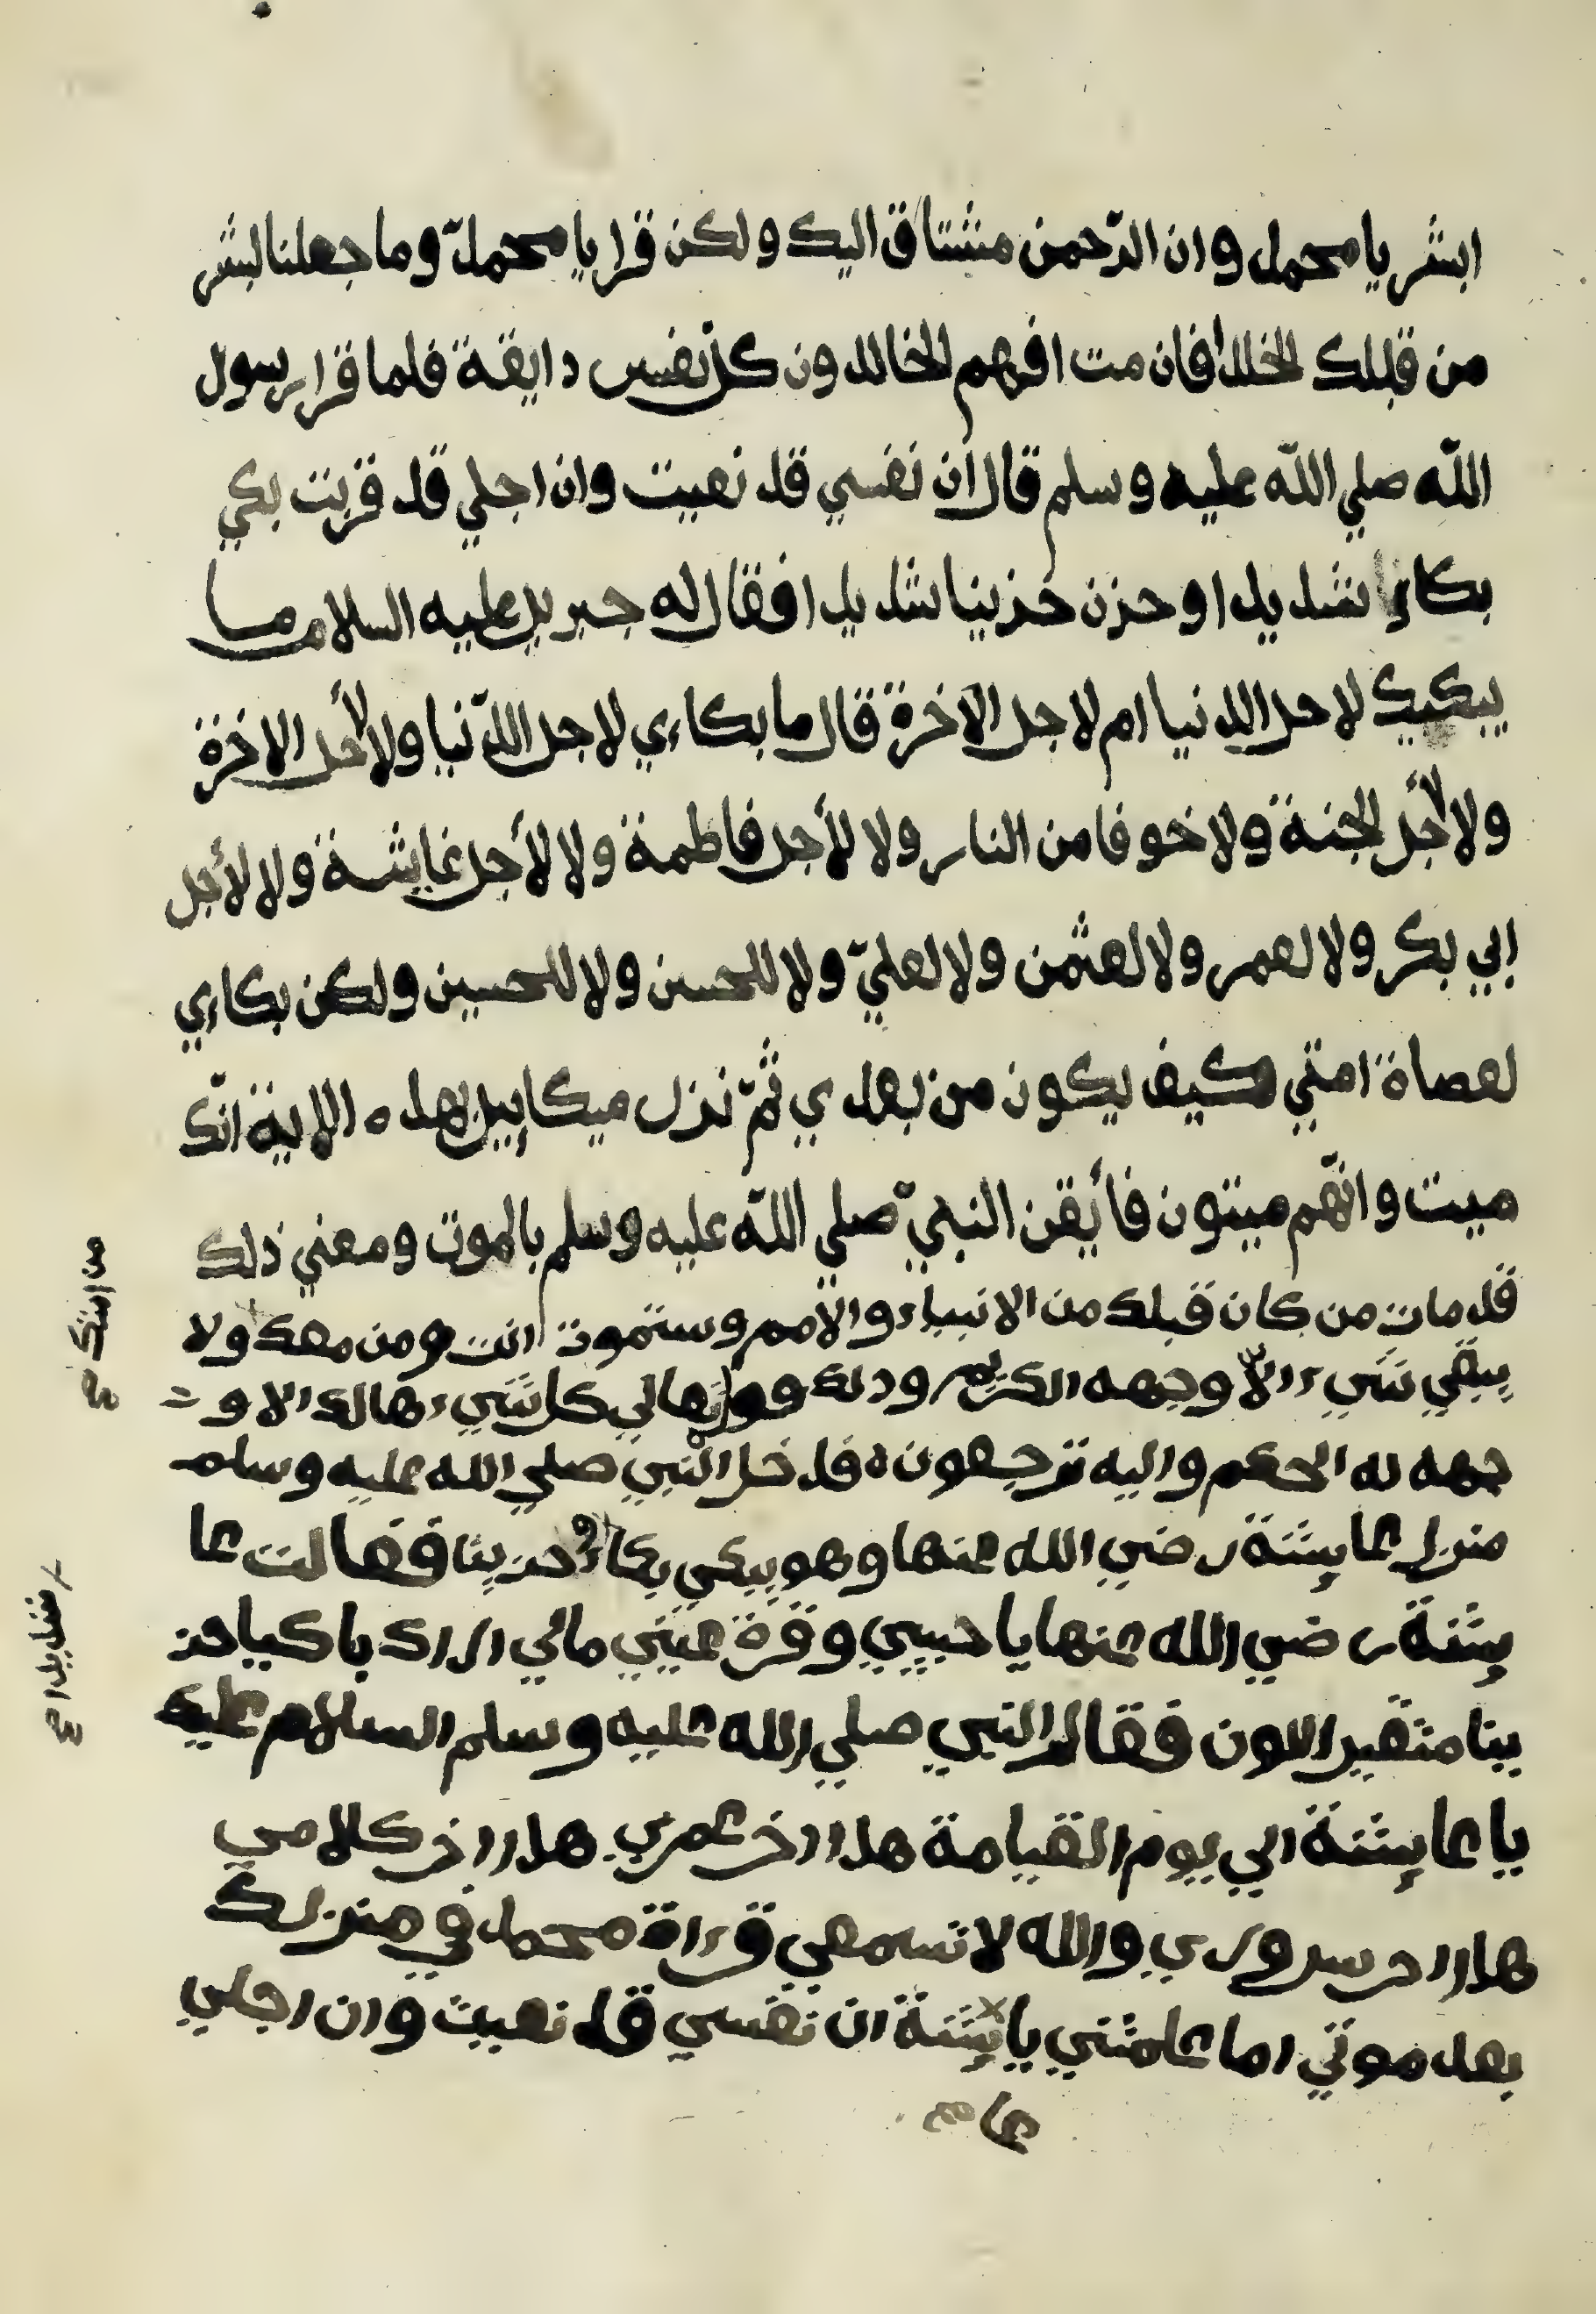 ابشر يا محمد وان الرّحمن مشتاق اليك ولكن قرا يا محمدّ وما جعلنا لبشر
من قبلك الخلد افان مت افهم الخالدون كلّ نفس دايقة فلما قرا رسول
اللّه صلي اللّه عليه وسلم قال ان نفسي قد نعيت وان اجلي قد قربت بكي
بكاء شديدا وحزن حزينا شديدا فقال له جبريل عليه السلام ما
يبكيك لاجل الدنيا ام لاجل الاخرة قال ما بكاءي لاجل الدّنيا ولا لأجل الاخرة
ولا لأجل الجنة ولا خوفا من النار ولا لأجل فاطمة ولا لأجل عايشة ولا لأجل
ابي بكر ولا لعمر ولا لعثمن ولا لعليّ ولا للحسن ولا للحسين ولكن بكاءي
لعصاة امتي كيف يكون من بعدي ثمّ نزل ميكاييل بهده الاية انّك
ميت وانّهم ميتون فأيقن النبيّ صلي اللّه عليه وسلم بالموت ومعني ذلك
قد مات من كان قبلك من الانبياء والامم وستموت انت ومن معك ولا
يبقي شيء الاّ وجهه الكريم ودلك تعالي كل شيء هالك الا و
جهه له الحكم واليه ترجعون فدخل النبي صلي الله عليه وسلم
منزل عايشة رضي الله عنها وهو يبكي بكاء حزينا فقالت عا
يشة رضي الله عنها يا حبيبي وقرة عيني مالي اراك باكيا حز
ينا متغير اللون فقال النبي صلي الله عليه وسلم السلام عليك
يا عايشة الي يوم القيامة هدا اخر عمري هدا اخر كلامي
هدا اخر سروري والله لا تسمعي قراءة محمد في منزلك
بعد موتي اما علمتني يا يشة ان نفسي قد نعيت وان اجلي
عا
من امتك